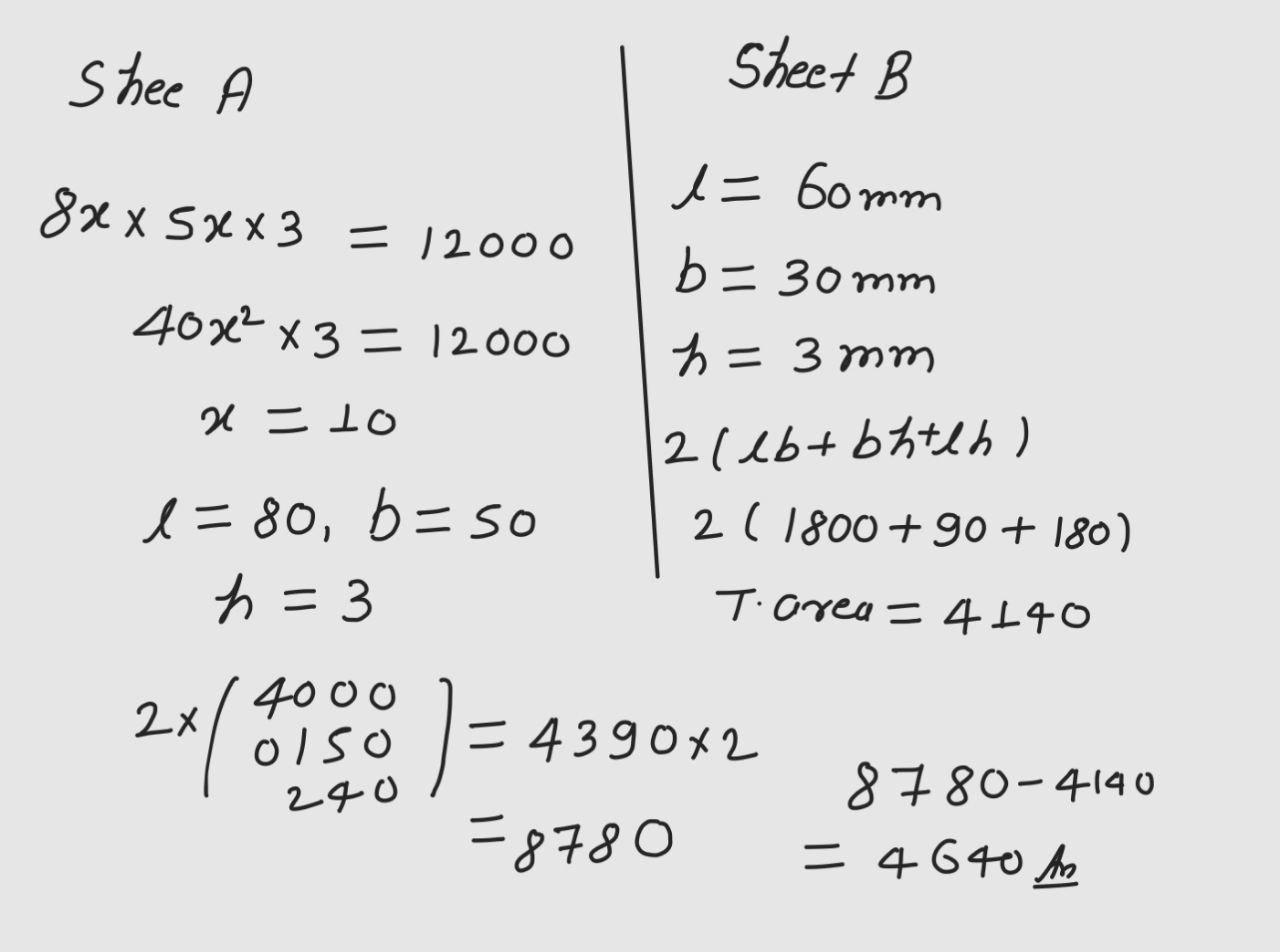 Shee A
8x × 5x × 3 = 12000
40x² × 3 = 12000
x = 10
l = 80, b = 50
h = 3
2×(4000
0150
240) = 4390×2
= 8780
Sheet B
l = 60mm
b = 30mm
h = 3mm
2(lb+bh+lh)
2(1800+90+180)
T. area = 4140
8780-4140
= 4640